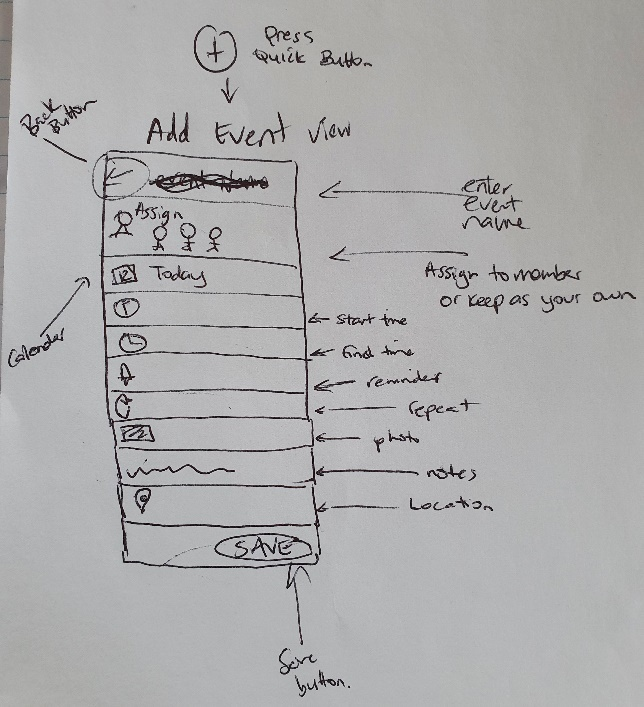 +
Press
Quick Button.
Back
Button
Add Event View
enter
event
name
Assign
Assign to member
or keep as your own
12 Today
Calender
Start time
End time
reminder
repeat
photo
notes
Location
SAVE
Save
button.